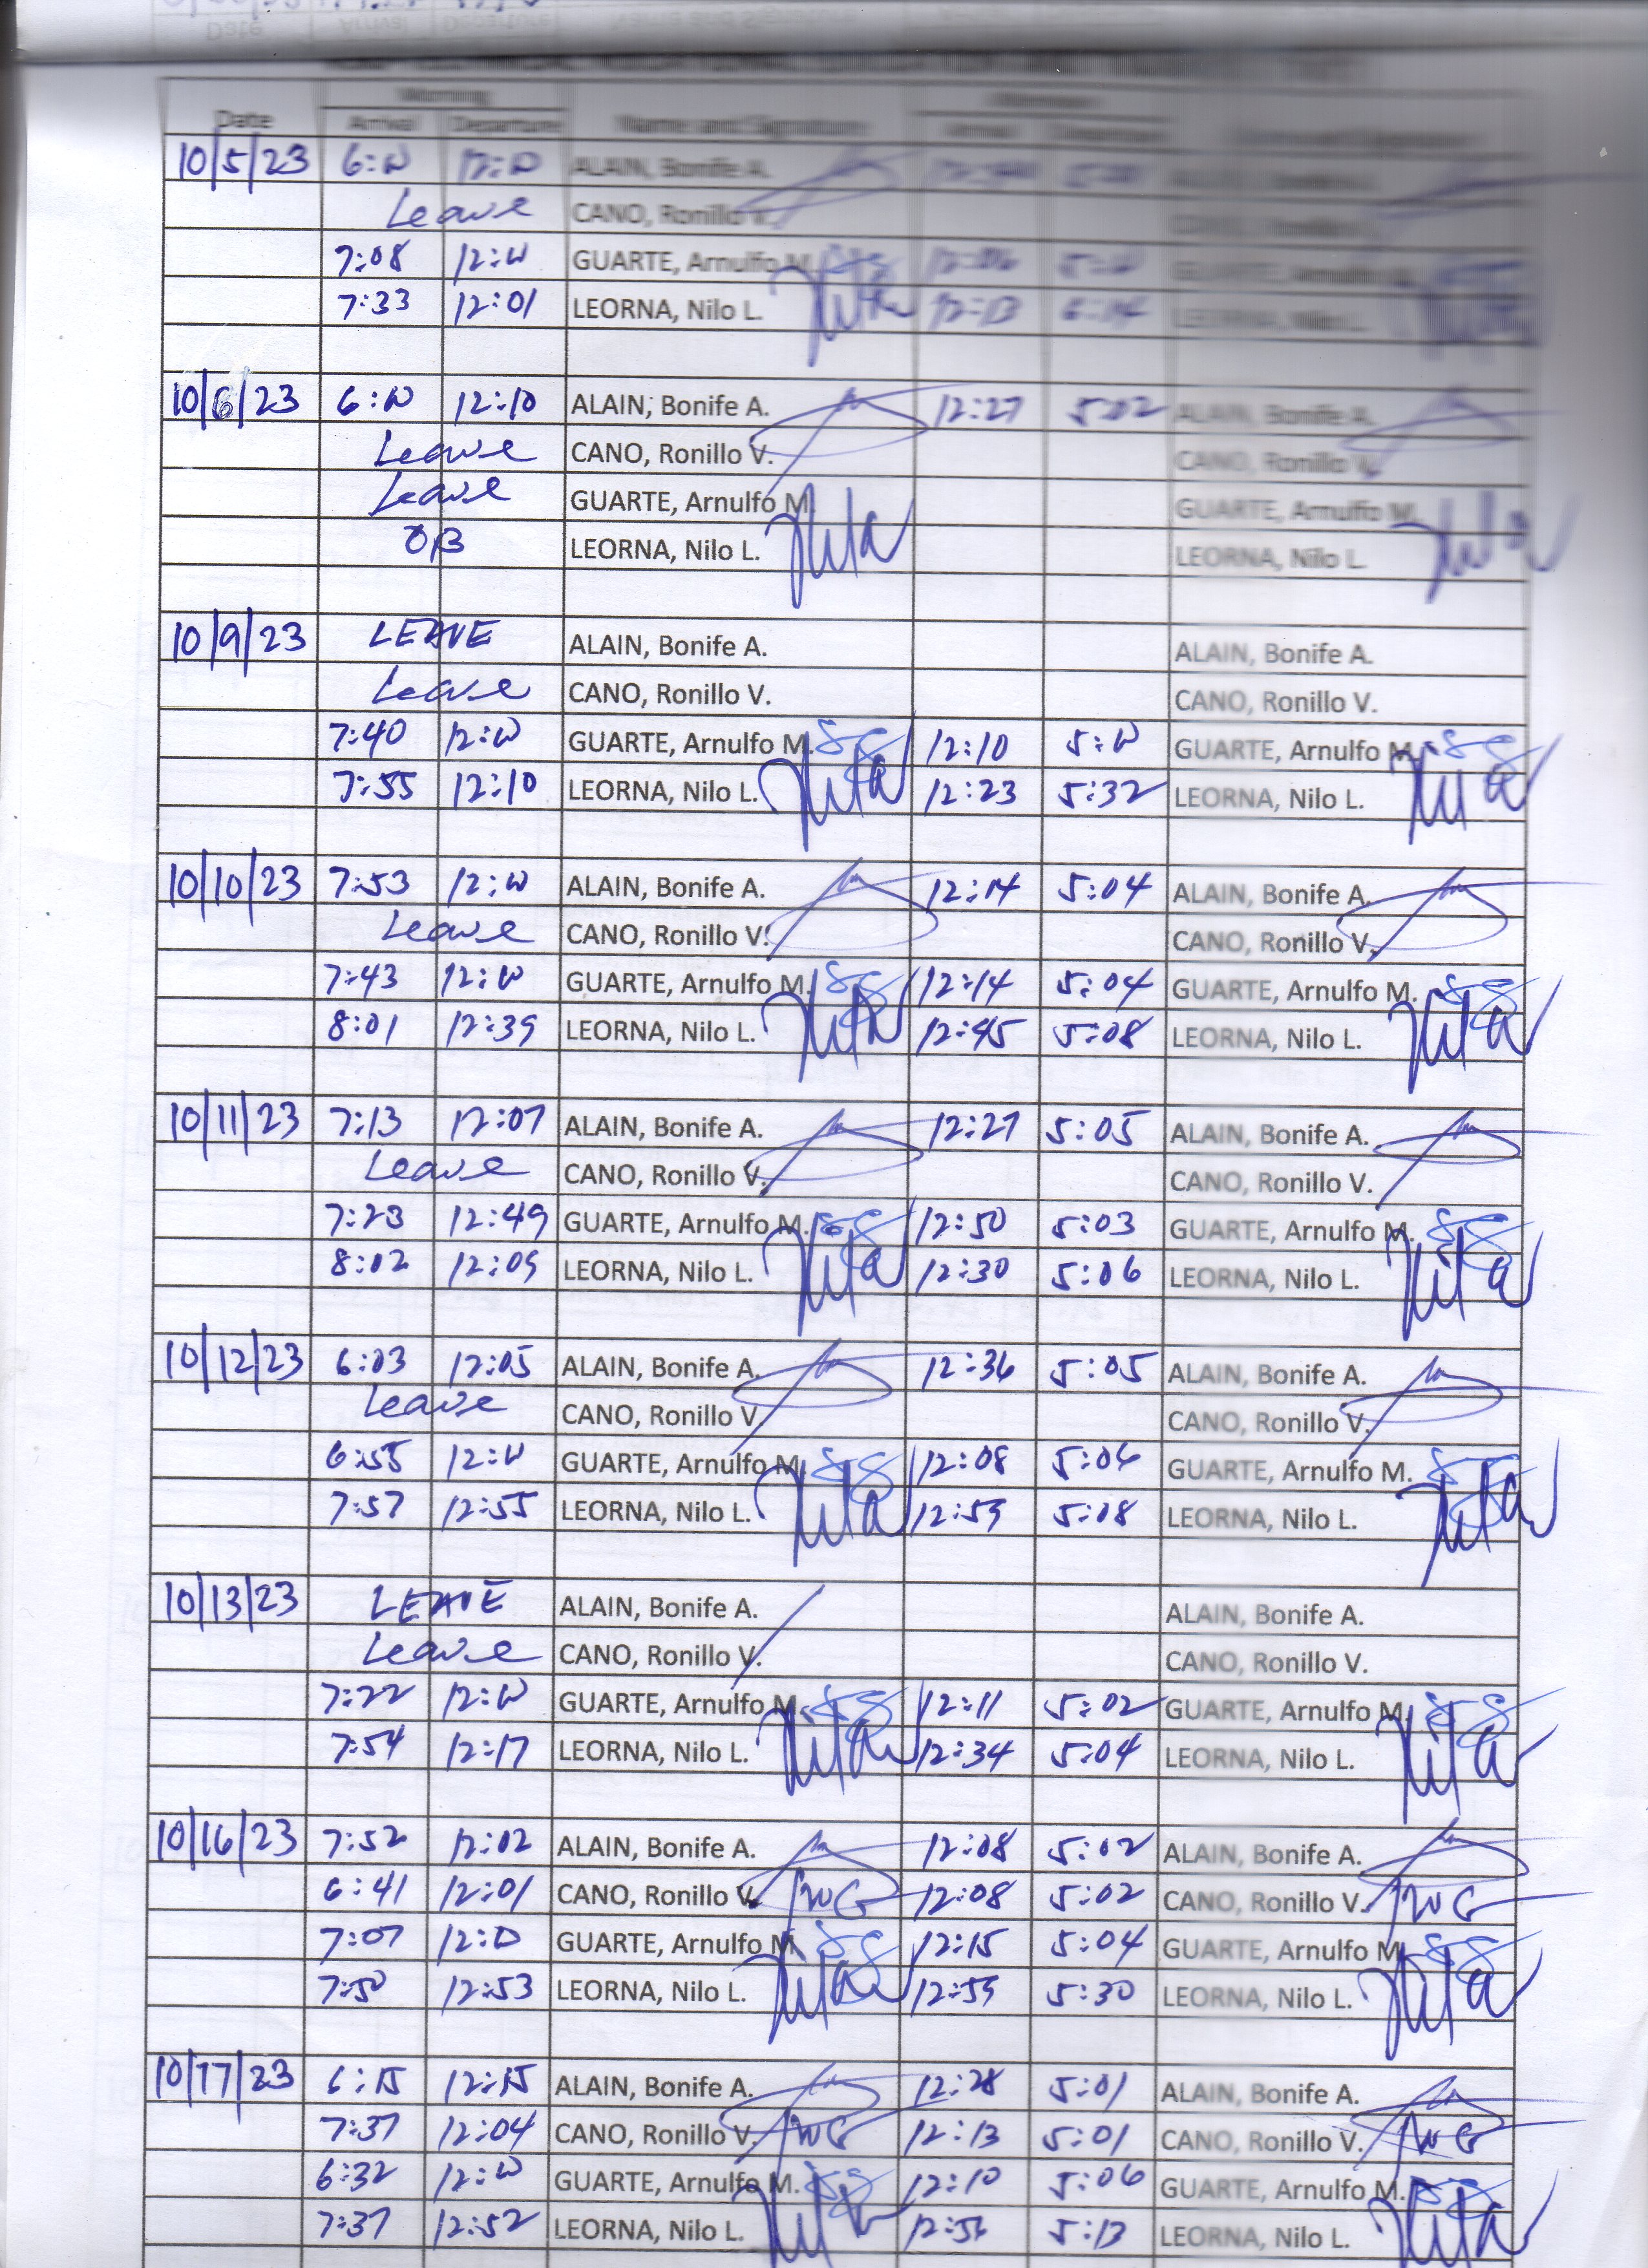 Date Arrival Departure Name and Signature Arrival Departure
10/5/23 6:00 12:00 ALAIN, Bonife A.
Leave CANO, Ronillo V.
7:08 12:00 GUARTE, Arnulfo M. 12:06 5:00 GUARTE, Arnulfo M.
7:33 12:01 LEORNA, Nilo L. 12:13 6:14 LEORNA, Nilo L.
10/6/23 6:00 12:10 ALAIN, Bonife A. 12:27 5:02 ALAIN, Bonife A.
Leave CANO, Ronillo V. CANO, Ronillo V.
Leave GUARTE, Arnulfo M. GUARTE, Arnulfo M.
OB LEORNA, Nilo L. LEORNA, Nilo L.
10/9/23 LEAVE ALAIN, Bonife A. ALAIN, Bonife A.
Leave CANO, Ronillo V. CANO, Ronillo V.
7:40 12:00 GUARTE, Arnulfo M. 12:10 5:00 GUARTE, Arnulfo M.
7:55 12:10 LEORNA, Nilo L. 12:23 5:32 LEORNA, Nilo L.
10/10/23 7:53 12:00 ALAIN, Bonife A. 12:14 5:04 ALAIN, Bonife A.
Leave CANO, Ronillo V. CANO, Ronillo V.
7:43 12:00 GUARTE, Arnulfo M. 12:14 5:04 GUARTE, Arnulfo M.
8:01 12:39 LEORNA, Nilo L. 12:45 5:08 LEORNA, Nilo L.
10/11/23 7:13 12:07 ALAIN, Bonife A. 12:27 5:05 ALAIN, Bonife A.
Leave CANO, Ronillo V. CANO, Ronillo V.
7:23 12:49 GUARTE, Arnulfo M. 12:50 5:03 GUARTE, Arnulfo M.
8:02 12:09 LEORNA, Nilo L. 12:30 5:06 LEORNA, Nilo L.
10/12/23 6:03 12:05 ALAIN, Bonife A. 12:36 5:05 ALAIN, Bonife A.
Leave CANO, Ronillo V. CANO, Ronillo V.
6:55 12:00 GUARTE, Arnulfo M. 12:08 5:06 GUARTE, Arnulfo M.
7:57 12:55 LEORNA, Nilo L. 12:59 5:08 LEORNA, Nilo L.
10/13/23 LEAVE ALAIN, Bonife A. ALAIN, Bonife A.
Leave CANO, Ronillo V. CANO, Ronillo V.
7:22 12:00 GUARTE, Arnulfo M. 12:11 5:02 GUARTE, Arnulfo M.
7:54 12:17 LEORNA, Nilo L. 12:34 5:04 LEORNA, Nilo L.
10/16/23 7:52 12:02 ALAIN, Bonife A. 12:08 5:02 ALAIN, Bonife A.
6:41 12:01 CANO, Ronillo V. 12:08 5:02 CANO, Ronillo V.
7:07 12:00 GUARTE, Arnulfo M. 12:15 5:04 GUARTE, Arnulfo M.
7:50 12:53 LEORNA, Nilo L. 12:59 5:30 LEORNA, Nilo L.
10/17/23 6:15 12:15 ALAIN, Bonife A. 12:28 5:01 ALAIN, Bonife A.
7:37 12:04 CANO, Ronillo V. 12:13 5:01 CANO, Ronillo V.
6:32 12:00 GUARTE, Arnulfo M. 12:10 5:06 GUARTE, Arnulfo M.
7:37 12:52 LEORNA, Nilo L. 12:56 5:13 LEORNA, Nilo L.